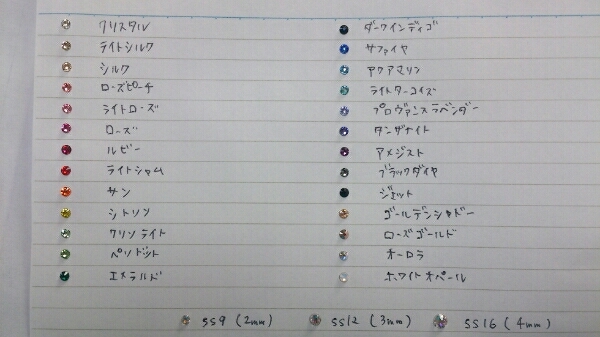 クリスタル
ライトシルク
シルク
ローズピーチ
ライトローズ
ローズ
ルビー
ライトシャム
サン
シトリン
クリソライト
ペリドット
エメラルド
ダークインディゴ
サファイヤ
アクアマリン
ライトターコイズ
プロヴァンスラベンダー
タンザナイト
アメジスト
ブラックダイヤ
ジェット
ゴールデンシャドー
ローズゴールド
オーロラ
ホワイトオパール
SS9 (2mm) SS12 (3mm) SS16 (4mm)